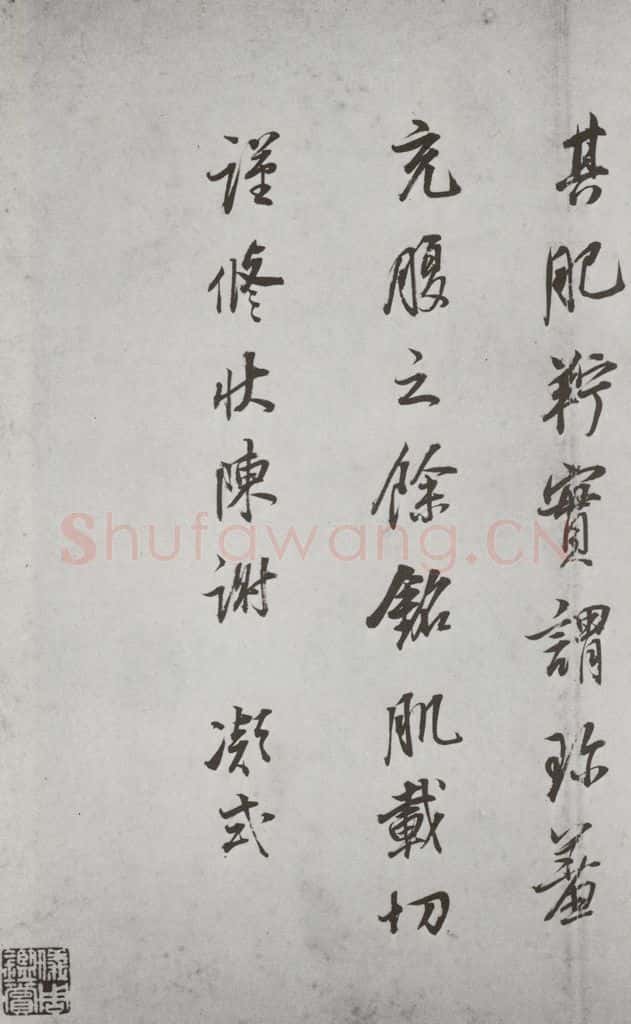 其肥羜實謂珍羞
充腹之餘銘肌載切
謹修狀陳謝 凝式
儀周鑑賞
Shufawang.CN